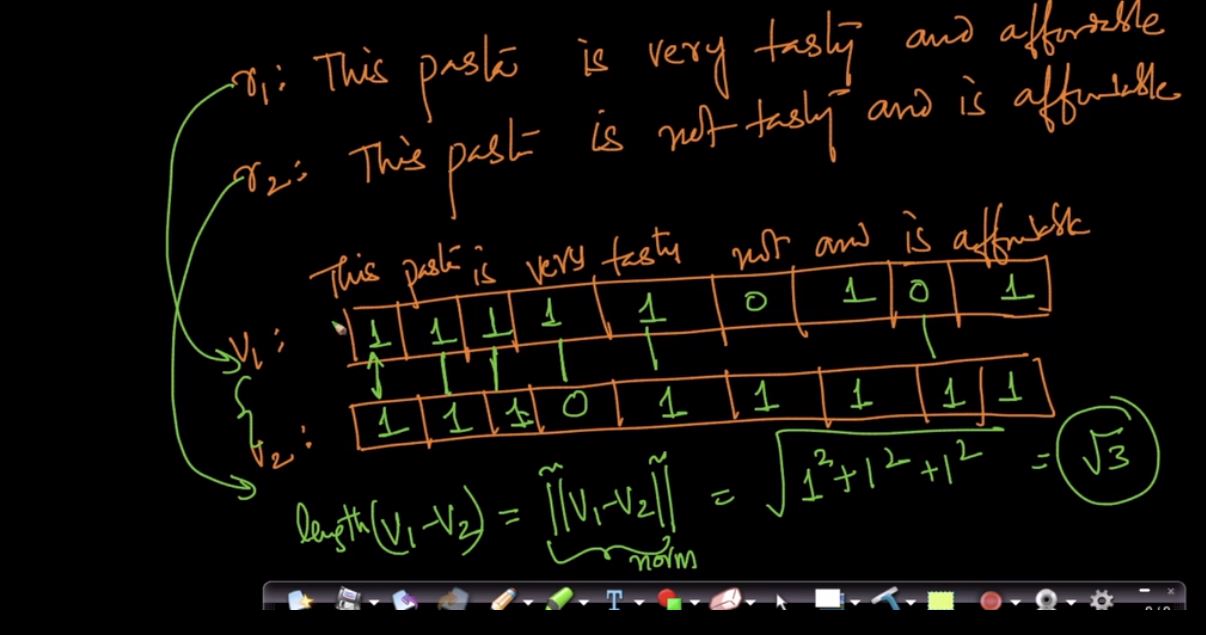 r1: This pasta is very tasty and affordable
r2: This pasta is not tasty and is affordable
This pasta is very tasty not and is affordable
V1: 1 1 1 1 1 0 1 0 1
V2: 1 1 1 0 1 1 1 1 1
length(V1-V2) = ||V1-V2|| = √1²+1²+1² = √3
norm
T